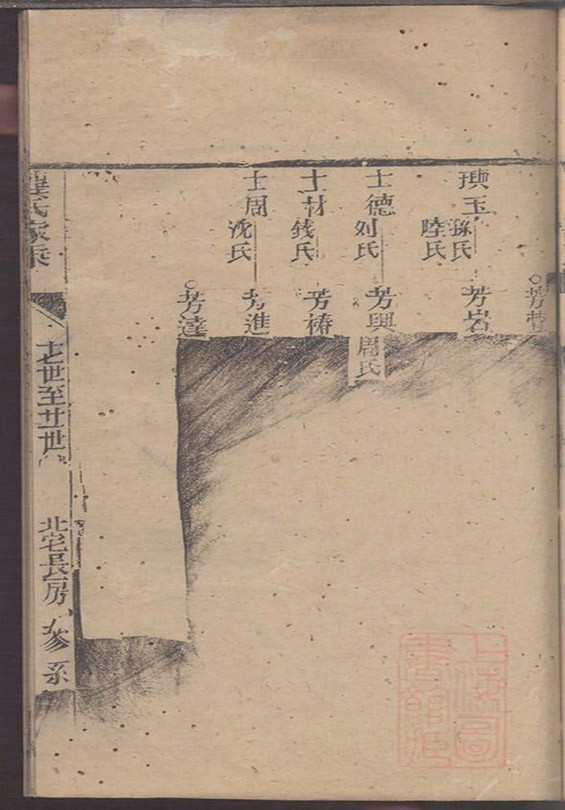 芳
璵玉
孫氏
陸氏
芳岩
士德
刘氏
芳興
周氏
士材
錢氏
芳椿
士周
沈氏
芳進
芳達
氏家乘
十七世至廿一世
北宅長房
系
上海圖書館